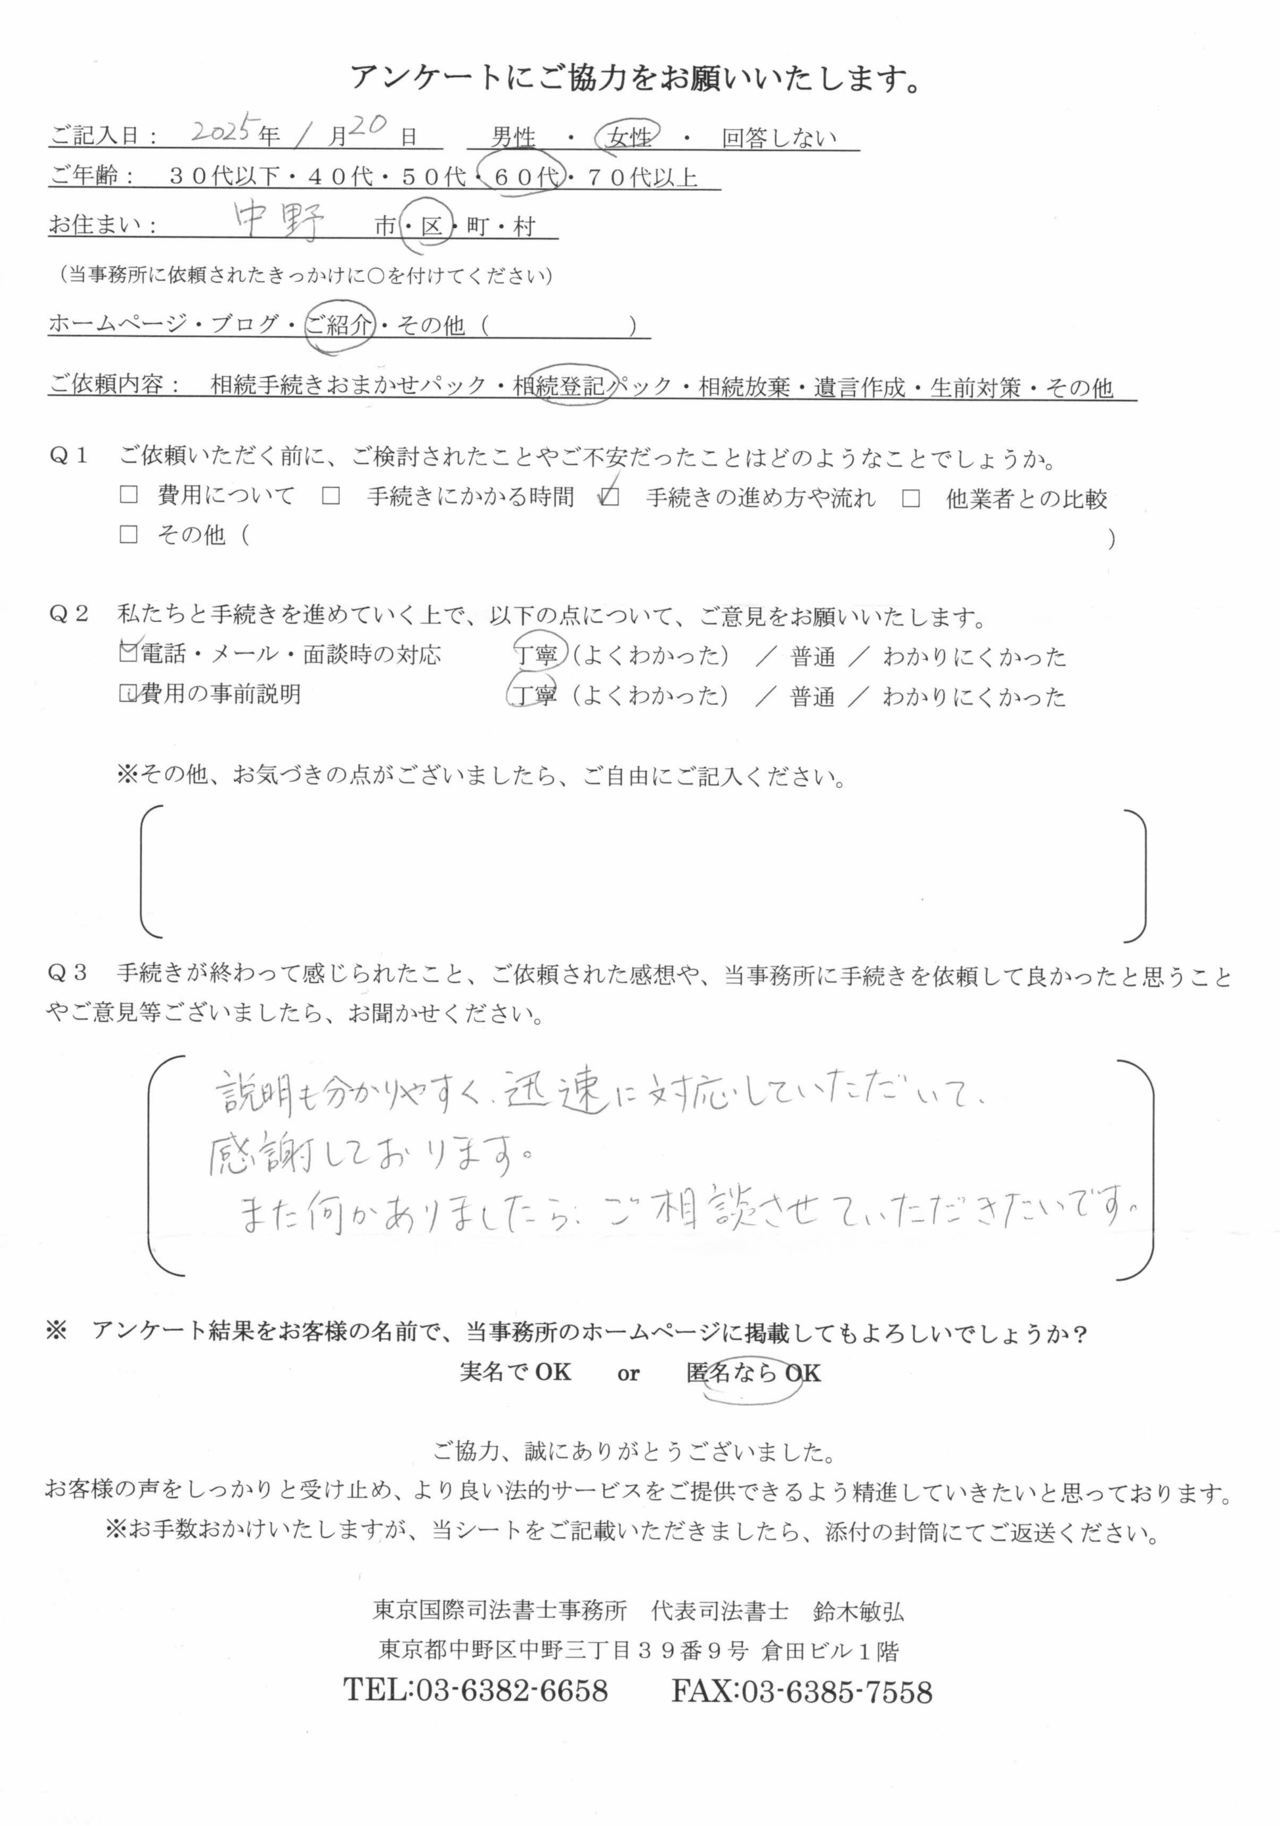 アンケートにご協力をお願いいたします。
ご記入日： 2025年 1 月20 日　男性 ・ 女性 ・ 回答しない
ご年齢： ３０代以下・４０代・５０代・６０代・７０代以上
お住まい： 中野 市・区・町・村
（当事務所に依頼されたきっかけに○を付けてください）
ホームページ・ブログ・ご紹介・その他（　　　　　　）
ご依頼内容： 相続手続きおまかせパック・相続登記パック・相続放棄・遺言作成・生前対策・その他
Ｑ１　ご依頼いただく前に、ご検討されたことやご不安だったことはどのようなことでしょうか。
□ 費用について □ 手続きにかかる時間 ☑ 手続きの進め方や流れ □ 他業者との比較
□ その他（　　　　　　）
Ｑ２　私たちと手続きを進めていく上で、以下の点について、ご意見をお願いいたします。
☑電話・メール・面談時の対応　丁寧（よくわかった） ／ 普通 ／ わかりにくかった
☑費用の事前説明　丁寧（よくわかった） ／ 普通 ／ わかりにくかった
※その他、お気づきの点がございましたら、ご自由にご記入ください。
Ｑ３　手続きが終わって感じられたこと、ご依頼された感想や、当事務所に手続きを依頼して良かったと思うこと
やご意見等ございましたら、お聞かせください。
説明も分かりやすく、迅速に対応していただいて、
感謝しております。
また何かありましたら、ご相談させていただきたいです。
※　アンケート結果をお客様の名前で、当事務所のホームページに掲載してもよろしいでしょうか？
実名で OK　or　匿名なら OK
ご協力、誠にありがとうございました。
お客様の声をしっかりと受け止め、より良い法的サービスをご提供できるよう精進していきたいと思っております。
※お手数おかけいたしますが、当シートをご記載いただきましたら、添付の封筒にてご返送ください。
東京国際司法書士事務所　代表司法書士　鈴木敏弘
東京都中野区中野三丁目３９番９号 倉田ビル１階
TEL:03-6382-6658　FAX:03-6385-7558